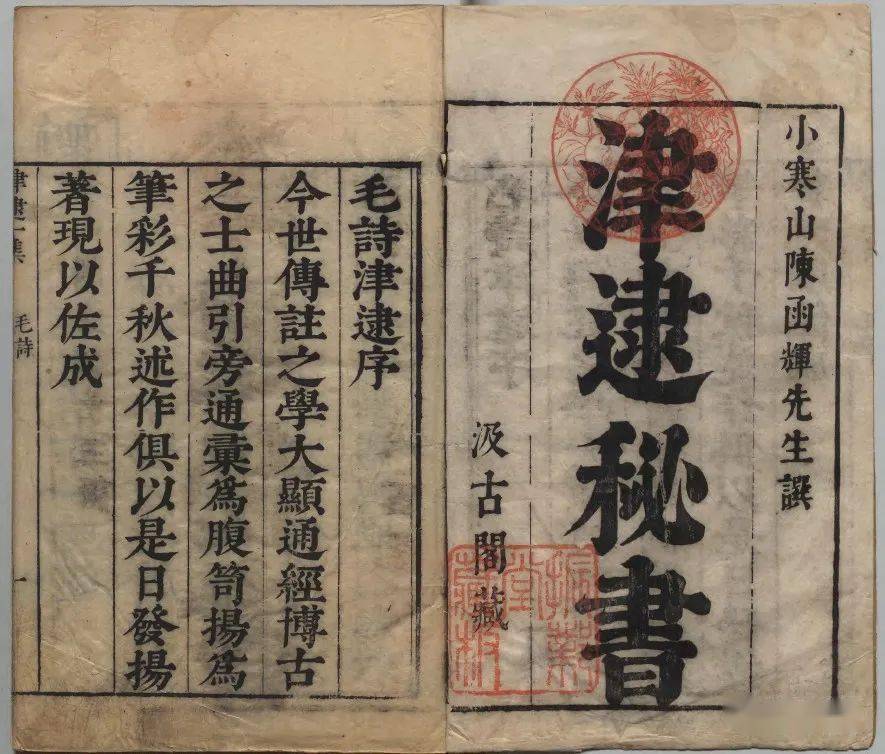 小寒山陳函輝先生譔
津逮秘書
汲古閣藏
毛詩津逮序
今世傳註之學大顯通經博古
之士曲引旁通彙爲腹笥揚爲
筆彩千秋述作俱以是日發揚
著現以佐成
津逮一集
毛詩
一